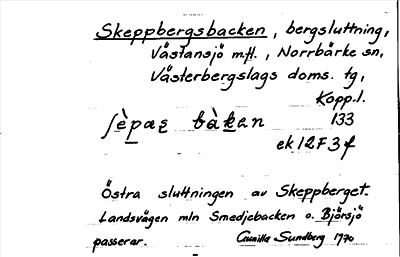 Skeppbergsbacken, bergsluttning,
Västansjö m.fl., Norrbärke sn,
Västerbergslags doms. tg,
Kopp.l.
ʃèpæʂ bàkan 133
ek 12F3f
Östra sluttningen av Skeppberget.
Landsvägen mln Smedjebacken o. Björsjö
passerar. Gunilla Sundberg 1970